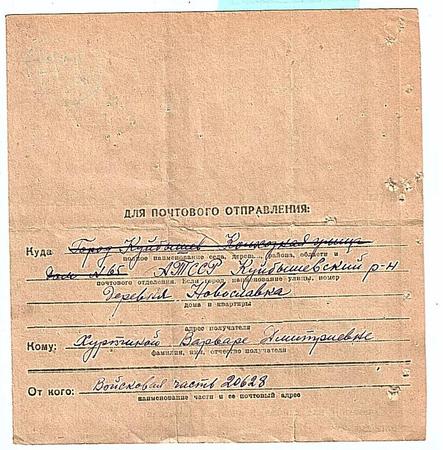 ДЛЯ ПОЧТОВОГО ОТПРАВЛЕНИЯ:
Куда Город Куйбышев Колхозная улица
полное наименование села, дерев., района, области и
дом №65 АТССР Куйбышевский р-н
почтового отделения. Если город наименование улицы, номер
Деревня Новославка
дома и квартиры
адрес получателя
Кому: Варваре Дмитриевне
фамилия, имя, отчество получателя
От кого: Войсковая часть 20628
наименование части и ее почтовый адрес